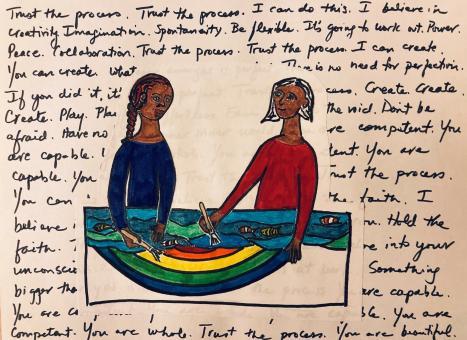 Trust the process. Trust the process. I can do this. I believe in
creativity. Imagination. Spontaneity. Be flexible. It's going to work out. Power.
Peace. Collaboration. Trust the process. Trust the process. I can create.
You can create. What There is no need for perfection.
If you did it, it's cess. Create. Create.
Create. Play. Play the void. Don't be
afraid. Have no re competent. You
are capable. tent. You are
capable. You rust the process.
You can the faith. I
believe Hold the
faith. re into your
unconscio Something
bigger tha are capable.
You are ca You are
competent. You are whole. Trust the process. You are beautiful.